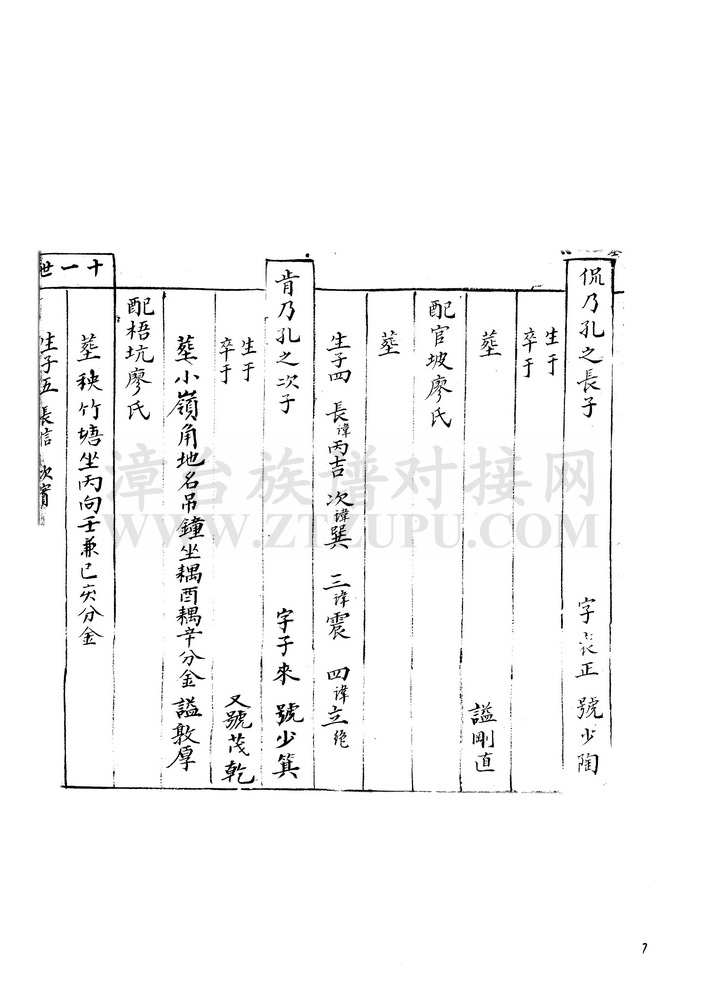 侃乃孔之長子 字 正 號少陶
生于
卒于
塟 謚剛直
配官坡廖氏
塟
生子四 長諱丙吉 次諱巽 三諱震 四諱立絶
肯乃孔之次子 字子來 號少箕
生于
卒于 又號茂乾
塟小嶺角地名吊鐘坐耦酉耦辛分金 謚敦厚
配梧坑廖氏
塟秧竹塘坐丙向壬兼巳亥分金
十一世
生子五 長信 次賓
漳台族谱对接网
WWW.ZTZUPU.COM
7